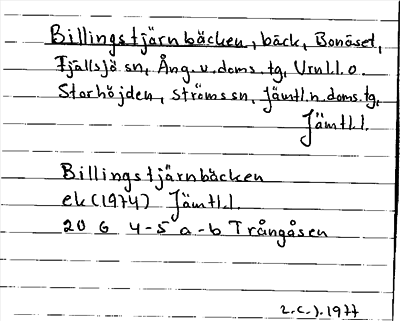 Billingstjärnbäcken, bäck, Bonäset,
Fjällsjö sn, Ång. v. doms. tg, Vrnl.l. o.
Storhöjden, Ströms sn, Jämtl. n. doms. tg,
Jämtl.l.
Billingstjärnbäcken
ek (1974) Jämtl.l.
20 G 4-5 a-b Trångåsen
2.C.).1977